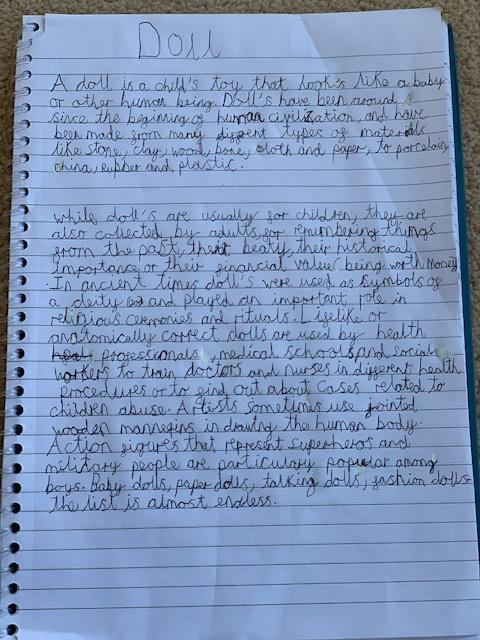 Doll
A doll is a child's toy that look's like a baby
or other human being. Doll's have been around
since the beginning of human civilization, and have
been made from many different types of materials
like stone, clay, wood, bone, cloth and paper, to porcelain,
china, rubber and plastic.
While doll's are usually for children, they are
also collected by adults, for remumbering things
from the past, their beaty, their historical
importance or their financial value (being worth money)
In ancient times doll's were used as symbols of
a deity and played an important role in
religious ceremonies and rituals. Lifelike or
anatomically correct dolls are used by health
professionals, medical schools and social
workers to train doctors and nurses in different health
procedures or to find out about cases related to
children abuse. Artists sometimes use jointed
wooden manneqins in drawing the human body.
Action figures that represent superheros and
military people are particulary popular among
boys. Baby dolls, paper dolls, talking dolls, fashion dolls-
the list is almost endless.